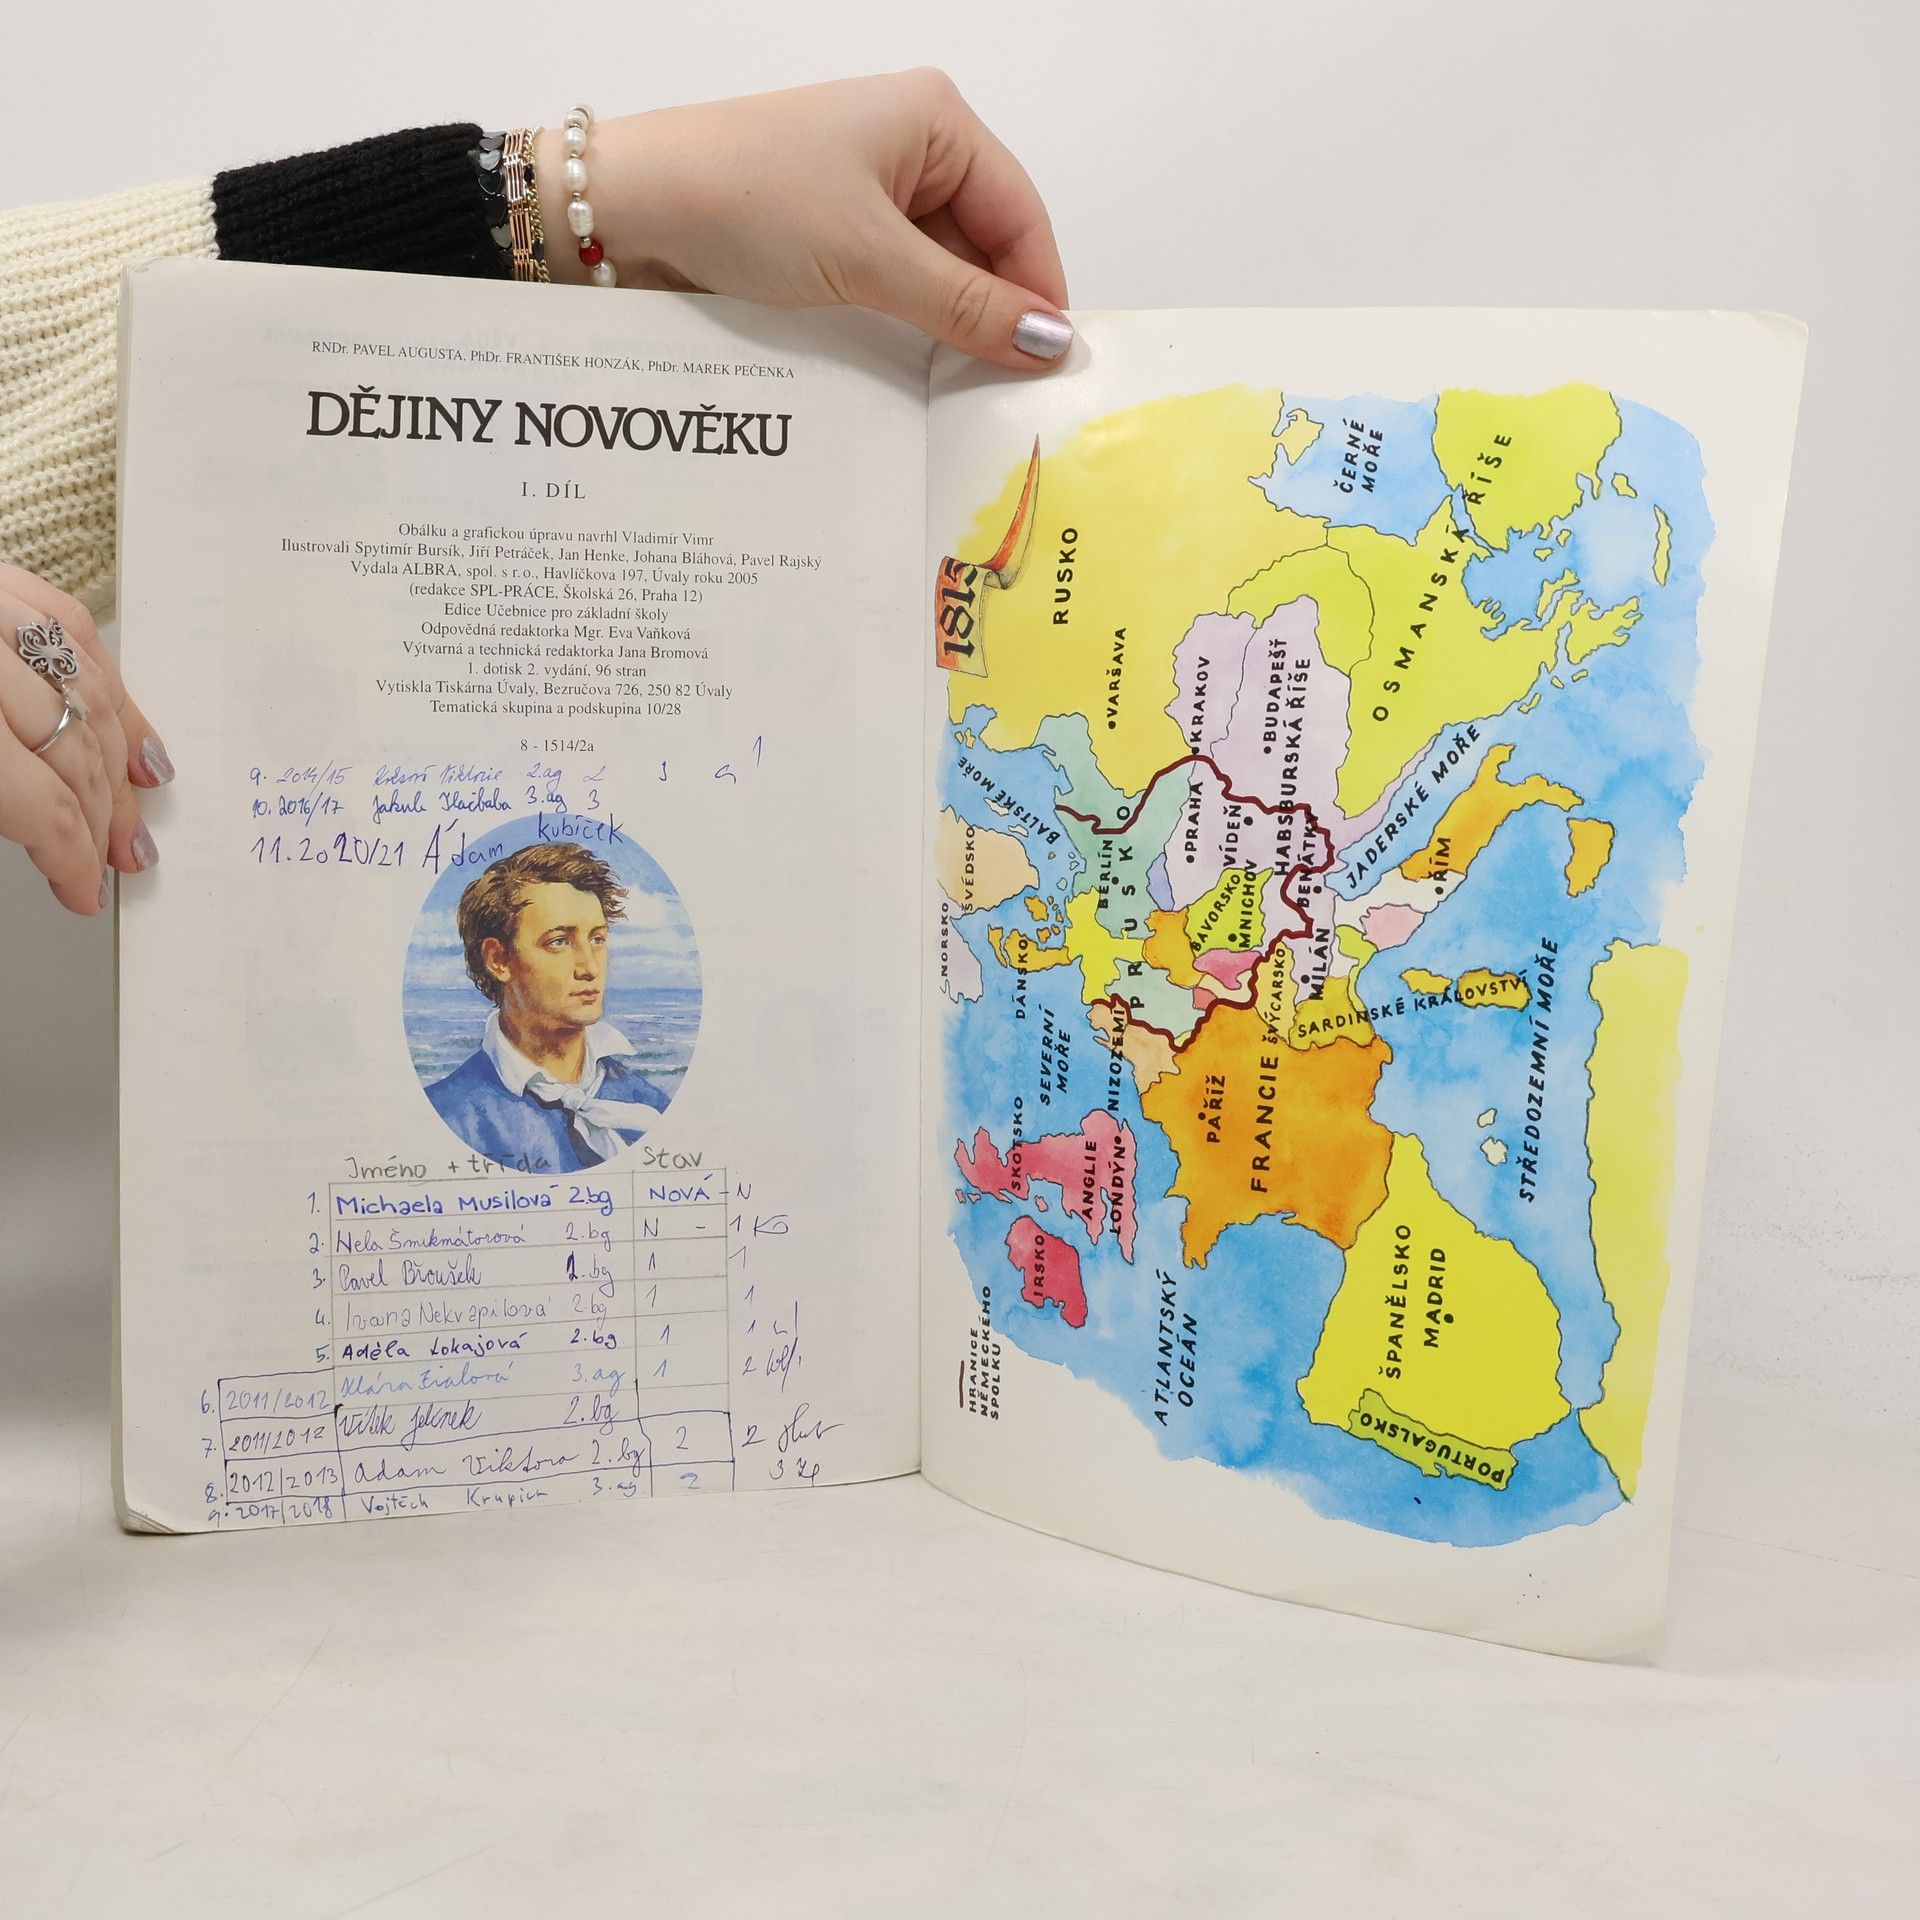 RNDr. PAVEL AUGUSTA, PhDr. FRANTIŠEK HONZÁK, PhDr. MAREK PEČENKA
DĚJINY NOVOVĚKU
I. DÍL
Obálku a grafickou úpravu navrhl Vladimír Vimr
Ilustrovali Spytimír Bursík, Jiří Petráček, Jan Henke, Johana Bláhová, Pavel Rajský
Vydala ALBRA, spol. s r.o., Havlíčkova 197, Úvaly roku 2005
(redakce SPL-PRÁCE, Školská 26, Praha 12)
Edice Učebnice pro základní školy
Odpovědná redaktorka Mgr. Eva Vaňková
Výtvarná a technická redaktorka Jana Bromová
1. dotisk 2. vydání, 96 stran
Vytiskla Tiskárna Úvaly, Bezručova 726, 250 82 Úvaly
Tematická skupina a podskupina 10/28
8 - 1514/2a
1
9. 2014/15 Viktorie 2.ag 2 3
10. 2016/17 Jakub 3.ag 3
11. 2020/21 Ádam kubíček
Jméno + třída stav
1. Michaela Musilová 2.bg NOVÁ - N
2. Nela Šmikmátorová 2.bg N - 1
3. Pavel Břoušek 2.bg 1 1
4. Ivana Nekvapilová 2.bg 1 1
5. Adéla Lokajová 2.bg 1 1
6. 2011/2012 Klára Fialová 3.ag 1 2
7. 2011/2012 Vítek Jelínek 2.bg
8. 2012/2013 Adam Viktora 2.bg 2 2
9. 2017/2018 Vojtěch 3.ag 2 3
1815
RUSKO
VARŠAVA
KRAKOV
BUDAPEŠŤ
HABSBURSKÁ ŘÍŠE
ČERNÉ
MOŘE
OSMANSKÁ ŘÍŠE
BALTSKÉ MOŘE
ŠVÉDSKO
NORSKO
DÁNSKO
BERLÍN
PRUSKO
PRAHA
VÍDEŇ
BAVORSKO
MNICHOV
BENÁTKY
MILÁN
JADERSKÉ MOŘE
ŘÍM
SEVERNÍ
MOŘE
NIZOZEMÍ
ŠVÝCARSKO
SARDINSKÉ KRÁLOVSTVÍ
STŘEDOZEMNÍ MOŘE
SKOTSKO
ANGLIE
LONDÝN
IRSKO
PAŘÍŽ
FRANCIE
ATLANTSKÝ
OCEÁN
ŠPANĚLSKO
MADRID
PORTUGALSKO
HRANICE
NĚMECKÉHO
SPOLKU